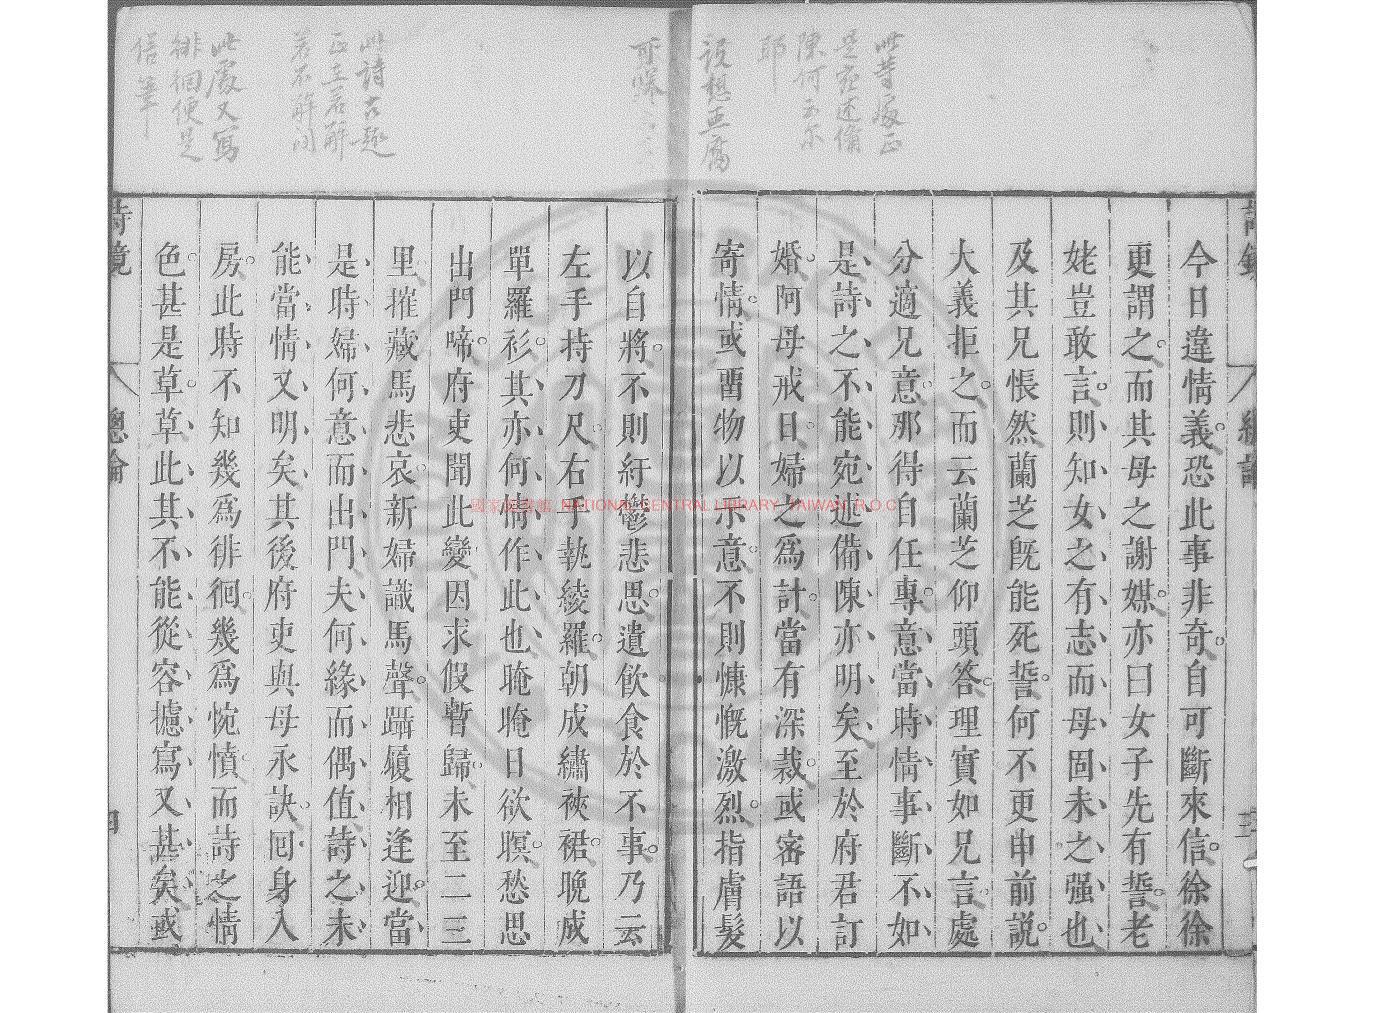 此等處正
是宛述備
陳何云不
耶
設想亟腐
可笑
今日違情義恐此事非奇自可斷來信徐徐
更謂之而其母之謝媒亦曰女子先有誓老
姥豈敢言則知女之有志而母固未之强也
及其兄悵然蘭芝旣能死誓何不更申前説
大義拒之而云蘭芝仰頭答理實如兄言處
分適兄意那得自任專意當時情事斷不如
是詩之不能宛述備陳亦明矣至於府君訂
婚阿母戒日婦之爲計當有深裁或密語以
寄情或畱物以示意不則慷慨激烈指膚髮
此詩古趣
正在若解
若不解間
此處又寫
徘徊便是
信筆
以自將不則紆鬱悲思遺飲食於不事乃云
左手持刀尺右手執綾羅朝成繡裌裙晚成
單羅衫其亦何情作此也晻晻日欲暝愁思
出門啼府吏聞此變因求假暫歸未至二三
里摧藏馬悲哀新婦識馬聲躡履相逢迎當
是時婦何意而出門夫何緣而偶值詩之未
能當情又明矣其後府吏與母永訣囘身入
房此時不知幾爲徘徊幾爲惋憤而詩之情
色甚是草草此其不能從容攄寫又甚矣或
詩鏡
總論
四
國家圖書館 NATIONAL CENTRAL LIBRARY, TAIWAN, R.O.C